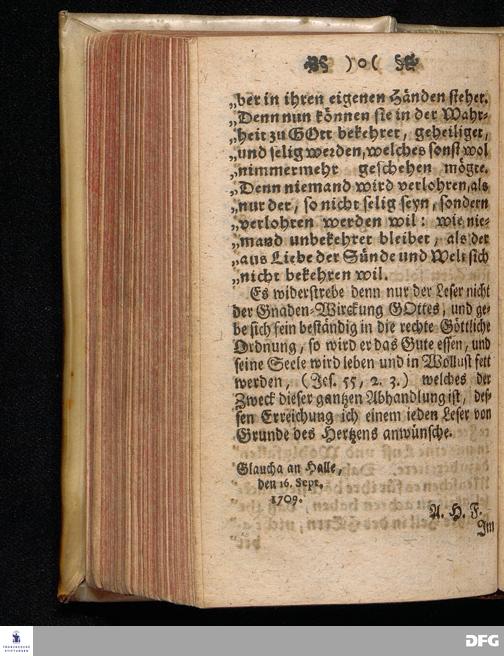 )o(
„ber in ihren eigenen Händen stehet.
„Denn nun können sie in der Wahr-
„heit zu GOtt bekehret, geheiliget,
„und selig werden, welches sonst wol
„nimmermehr geschehen mögte.
„Denn niemand wird verlohren, als
„nur der, so nicht selig seyn, sondern
„verlohren werden wil: wie nie-
„mand unbekehret bleibet, als der
„aus Liebe der Sünde und Welt sich
„nicht bekehren wil.
Es widerstrebe denn nur der Leser nicht
der Gnaden-Wirckung GOttes, und ge-
be sich fein beständig in die rechte Göttliche
Ordnung, so wird er das Gute essen, und
seine Seele wird leben und in Wollust fett
werden, (Jes. 55, 2. 3.) welches der
Zweck dieser gantzen Abhandlung ist, des-
sen Erreichung ich einem ieden Leser von
Grunde des Hertzens anwünsche.
Glaucha an Halle,
den 16. Sept.
1709.
A. H. F.
Im
FRANCKESCHE
STIFTUNGEN
DFG